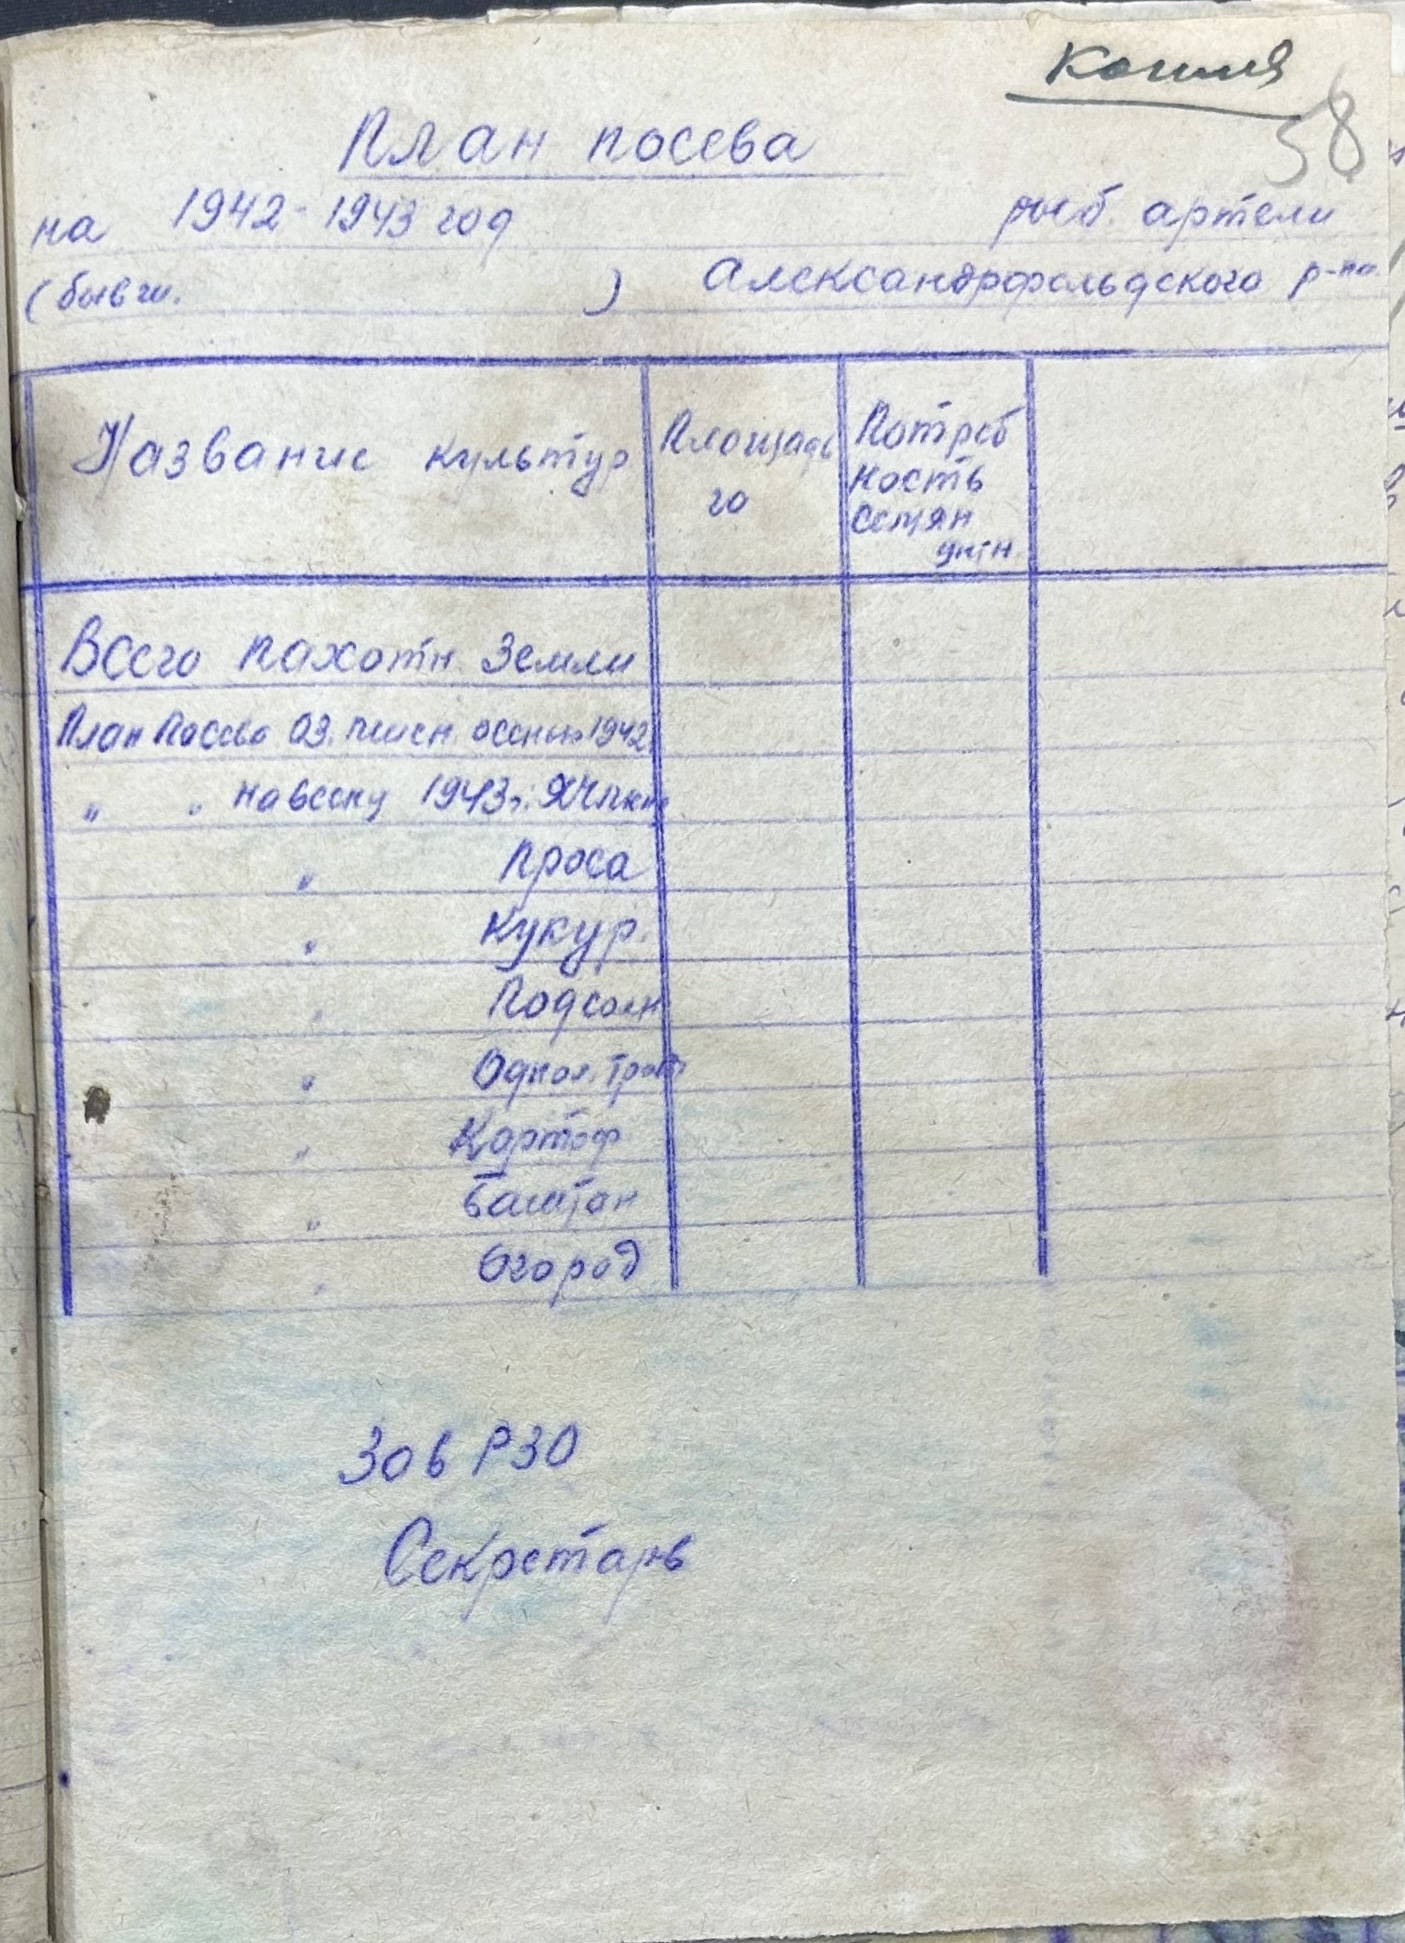 Копия
58
План посева
на 1942-1943 год рыб. артели
(бывш. ) Александрфельдского р-на
Название культур
Площадь га
Потреб
ность
семян
цнтн.
Всего пахотн. земли
План посева оз. пшен. осенью 1942
" " на весну 1943 г. Ячменя
" Проса
" Кукур.
" Подсолн
" Однол. трав
" Картоф
" Баштан
" Огород
Зав РЗО
Секретарь